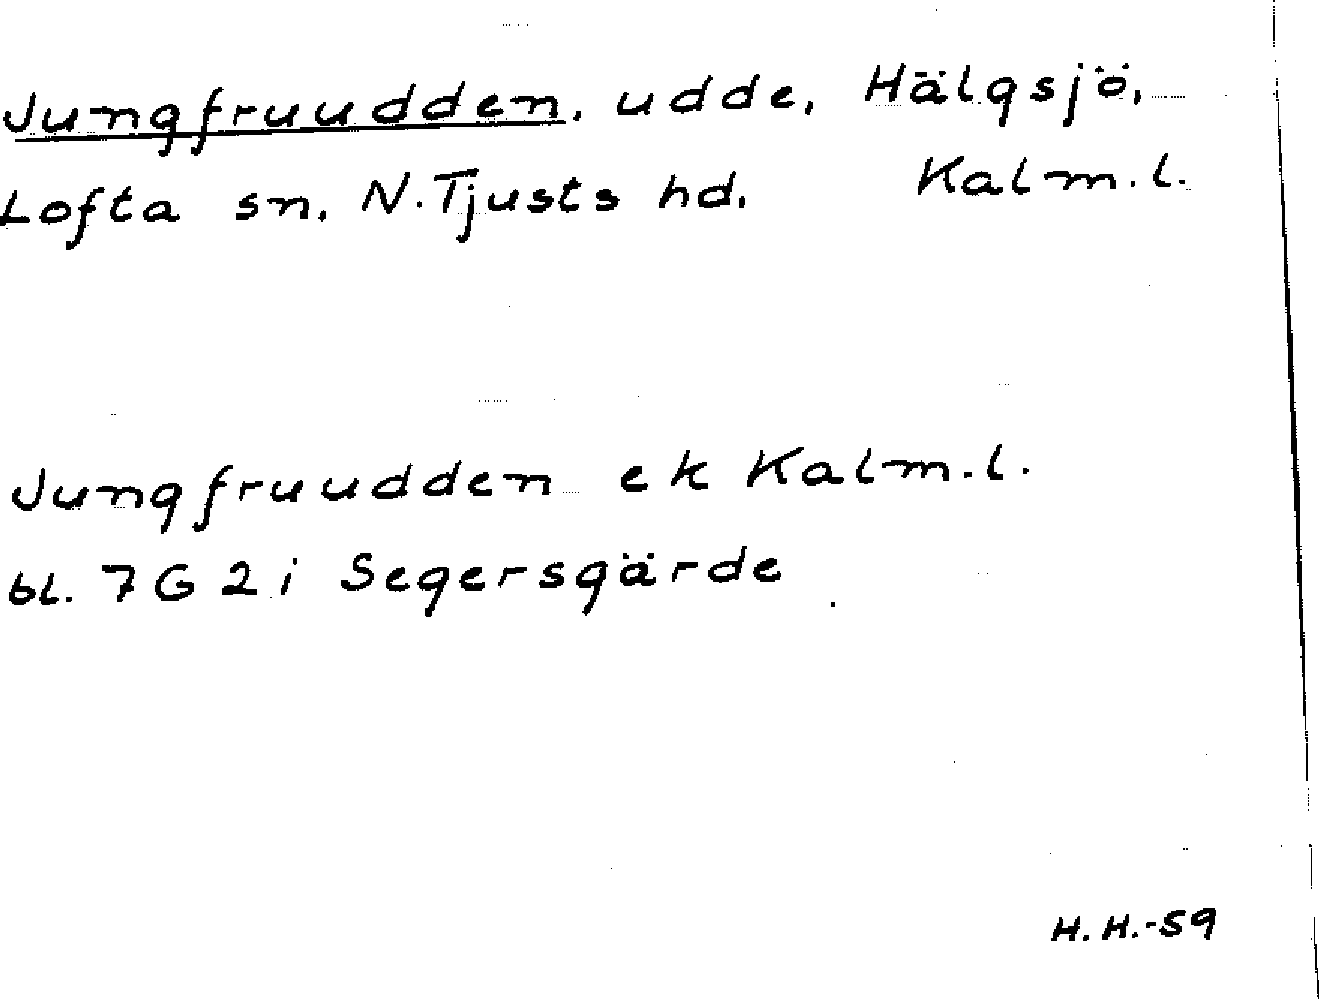 Jungfruudden, udde, Hälgsjö,
Lofta sn, N.Tjusts hd, Kalm.l.
Jungfruudden ek Kalm.l.
bl. 7G 2i Segersgärde
H.H.-59